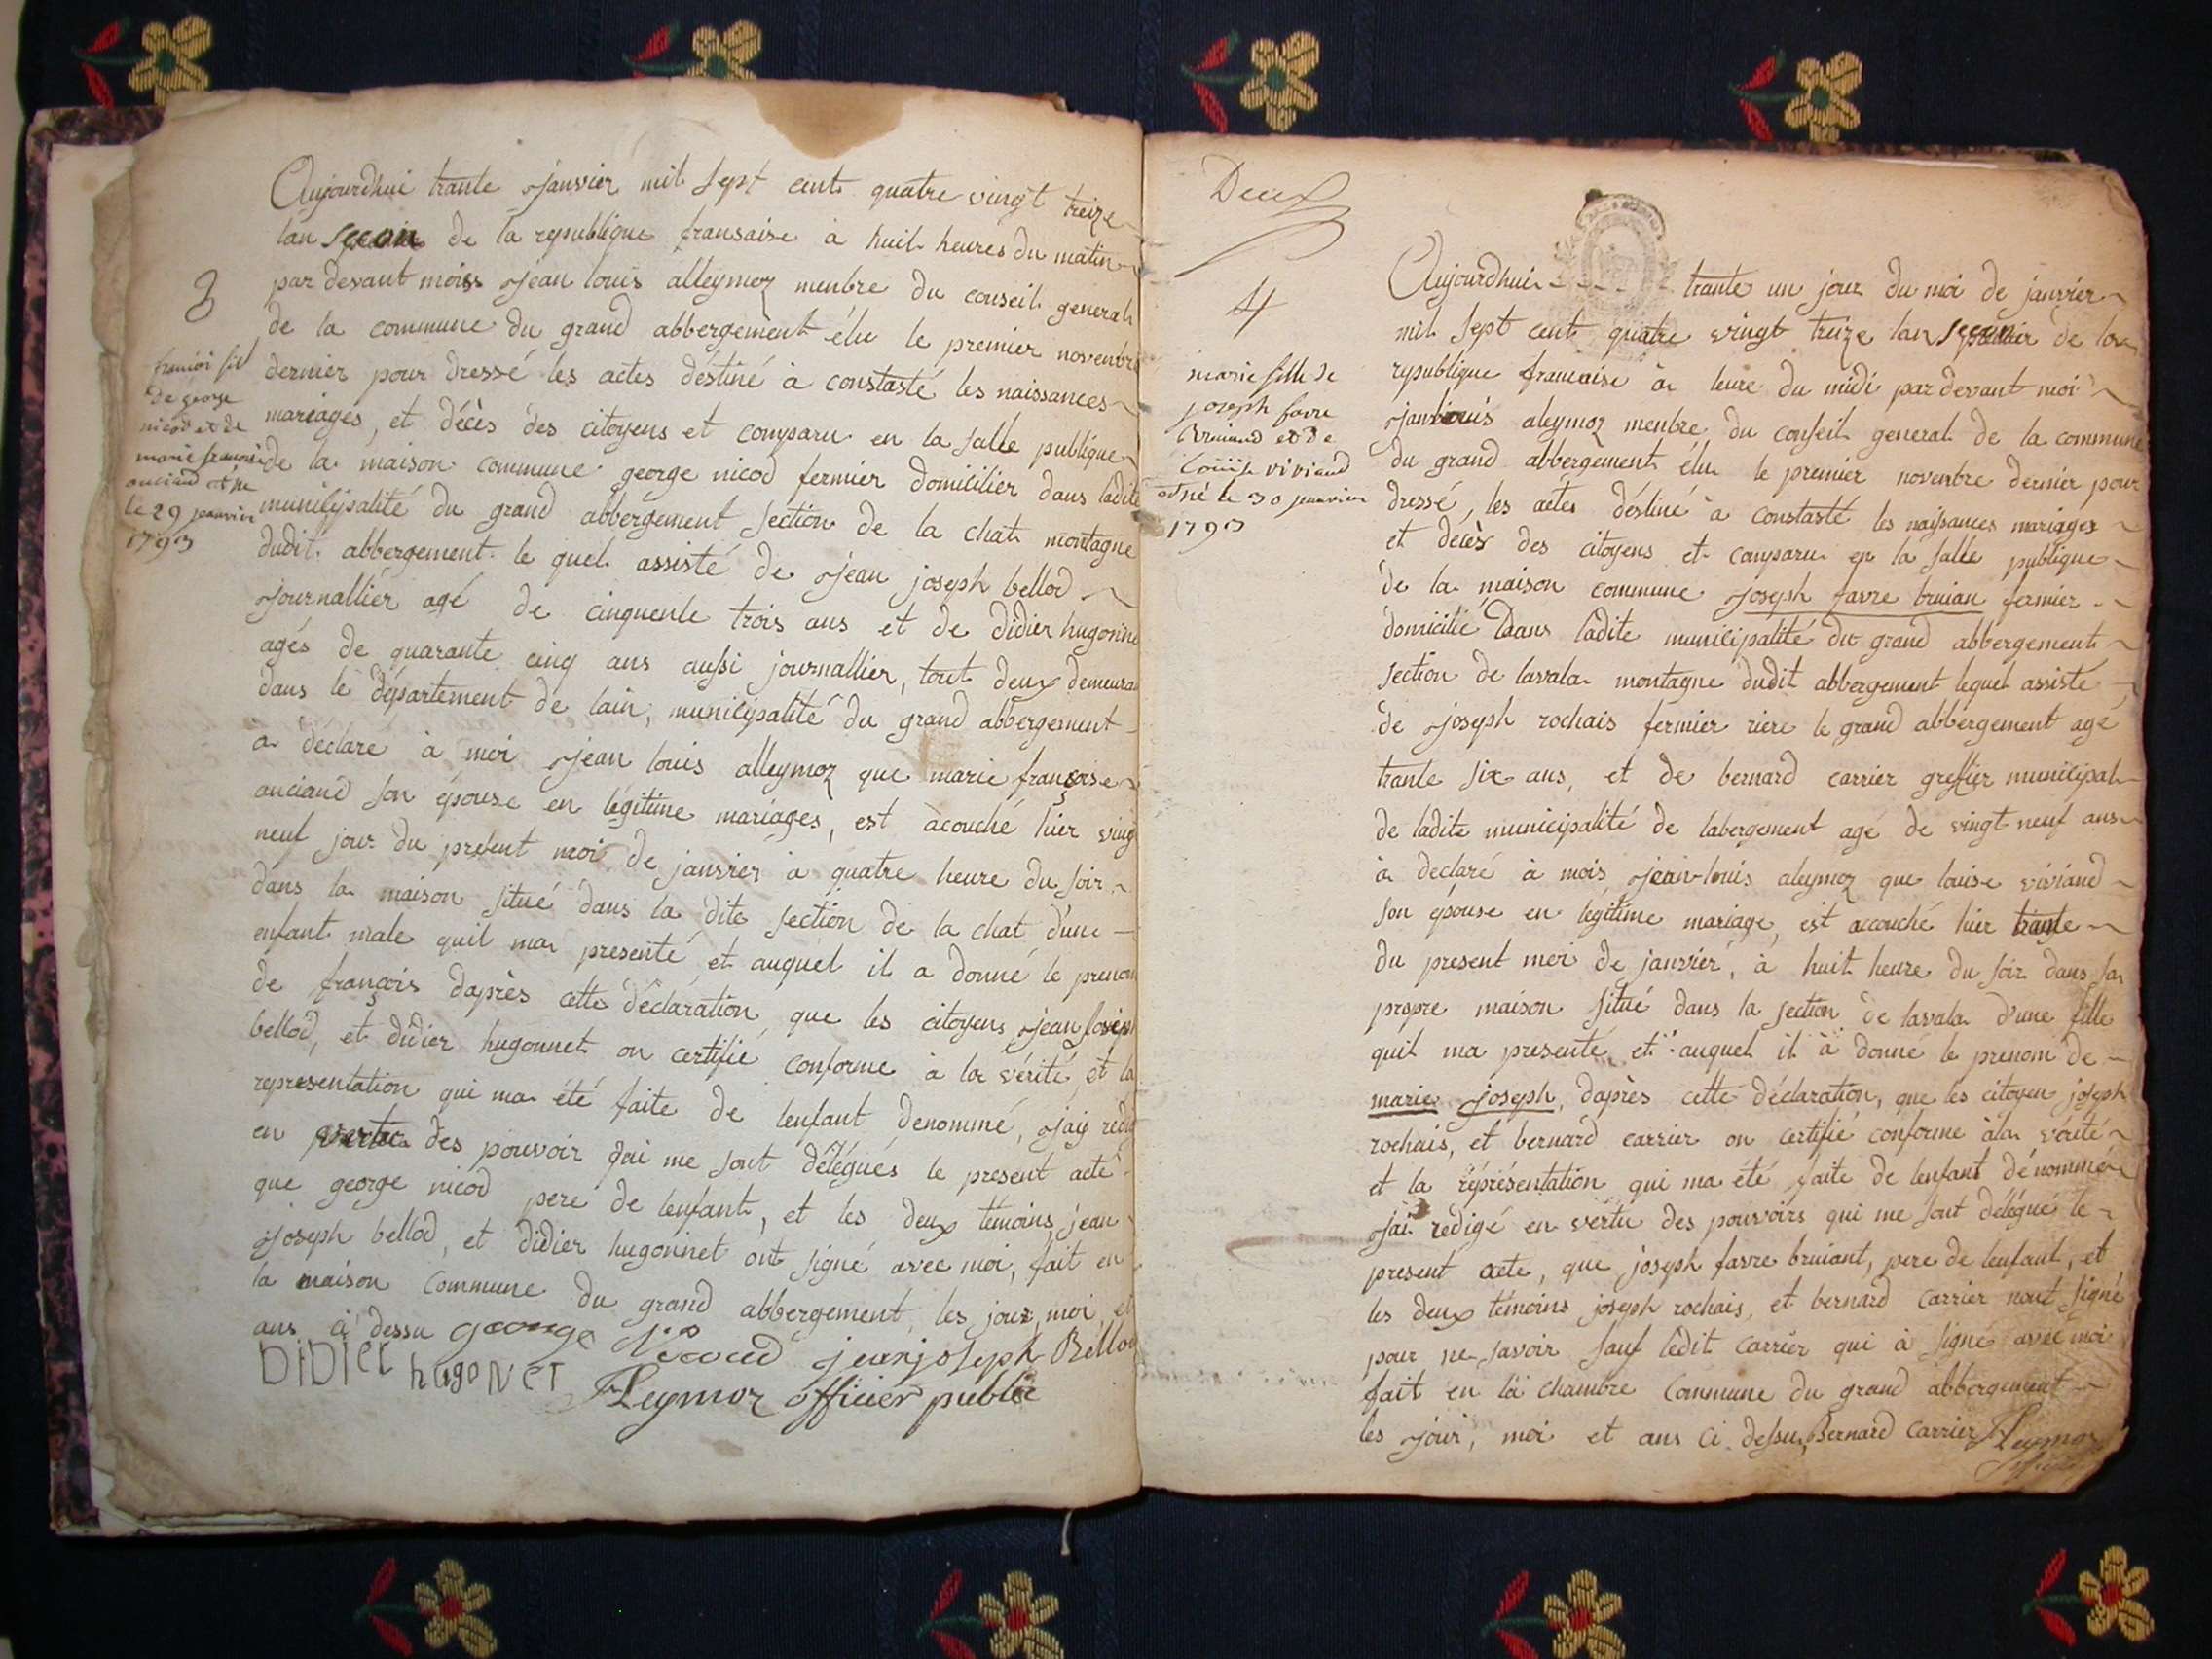 Aujourdhui trante janvier mil sept cent quatre vingt treize
lan secon de la republique fransaise à huit heures du matin
par devant mois jean louis alleymoz menbre du conseil general
de la commune du grand abbergement élu le premier novenbre
dernier pour dressé les actes déstiné à constasté les naissances
mariages, et décès des citoyens et comparu en la salle publique
de la maison commune george nicod fermier domicilier dans ladite
municipalité du grand abbergement section de la chat montagne
dudit abbergement le quel assisté de jean joseph bellod
journallier agé de cinquente trois ans et de didier hugonine
agés de quarante cinq ans aussi journallier, tout deux demeuran
dans le département de lain, municipalité du grand abbergement
a déclaré à moi jean louis alleymoz que marie françoise
anciand son épouse en légitime mariages, est àcouché hier ving
neuf jour du present moi de janvier à quatre heure du soir
dans la maison situé dans la dite section de la chat d'une
enfant male quil ma presenté et auquel il a donné le prenom
de françois daprès cette déclaration que les citoyens jean josep
bellod, et didier hugonnet on certifié conforme à la vérité et la
representation qui ma été faite de lenfant denommé, jay redig
en vertu des pouvoir qui me sont délégués le present acte
que george nicod pere de lenfant, et les deux témoins jean
joseph bellod, et didier hugoninet ont signé avec moi, fait en
la maison commune du grand abbergement les jour, moi et
ans ci dessu george Nicoud jeanjoseph Bellod
DiDier hugoNet
Aleymoz officier public
3
francoi fil
de george
nicod et de
marie francoise
anciand et né
le 29 jeanvier
1793
Deux
4
marie fille de
joseph favre
Bruiand et de
Louise viviand
et né le 30 jeanvier
1793
Aujourdhui trante un jour du moi de janvier
mil sept cent quatre vingt treize lan secon de la
republique francaise à leure du midi par devant moi
janlouis aleymoz menbre du conseil general de la commune
du grand abbergement élu le premier novenbre dernier pour
dressé, les actes déstiné à constasté les naissances mariages
et décès des citoyens et comparu en la salle publique
de la maison commune joseph favre bruian fermier
domicilié Dans ladite municipalité du grand abbergement
section de lavala montagne dudit abbergement lequel assisté
de joseph rochais fermier riere le grand abbergement agé
trante six ans, et de bernard carrier greffier municipal
de ladite municipalité de labergement agé de vingt neuf ans
à declaré à mois jean-louis aleymoz que louise viviand
son épouse en legitime mariage, est accouché hier trante
du present moi de janvier, à huit heure du soir dans sa
propre maison situé dans la section de lavala d'une fille
quil ma presenté et auquel il à donné le prenom de
marie joseph, daprès cette déclaration, que les citoyen joseph
rochais, et bernard carrier on certifié conforme àla vérité
et la répriésentation qui ma été faite de lenfant dénommé
jai redigé en vértu des pouvoirs qui me sont délégué le
present acte, que joseph favre bruiant, pere de lenfant, et
les deux témoins joseph rochais, et bernard carrier nont signé
pour ne savoir sauf ledit carrier qui à signé avec moi
fait en la chambre commune du grand abbergement
les jour, moi et ans ci dessu Bernard Carrier Aleymoz